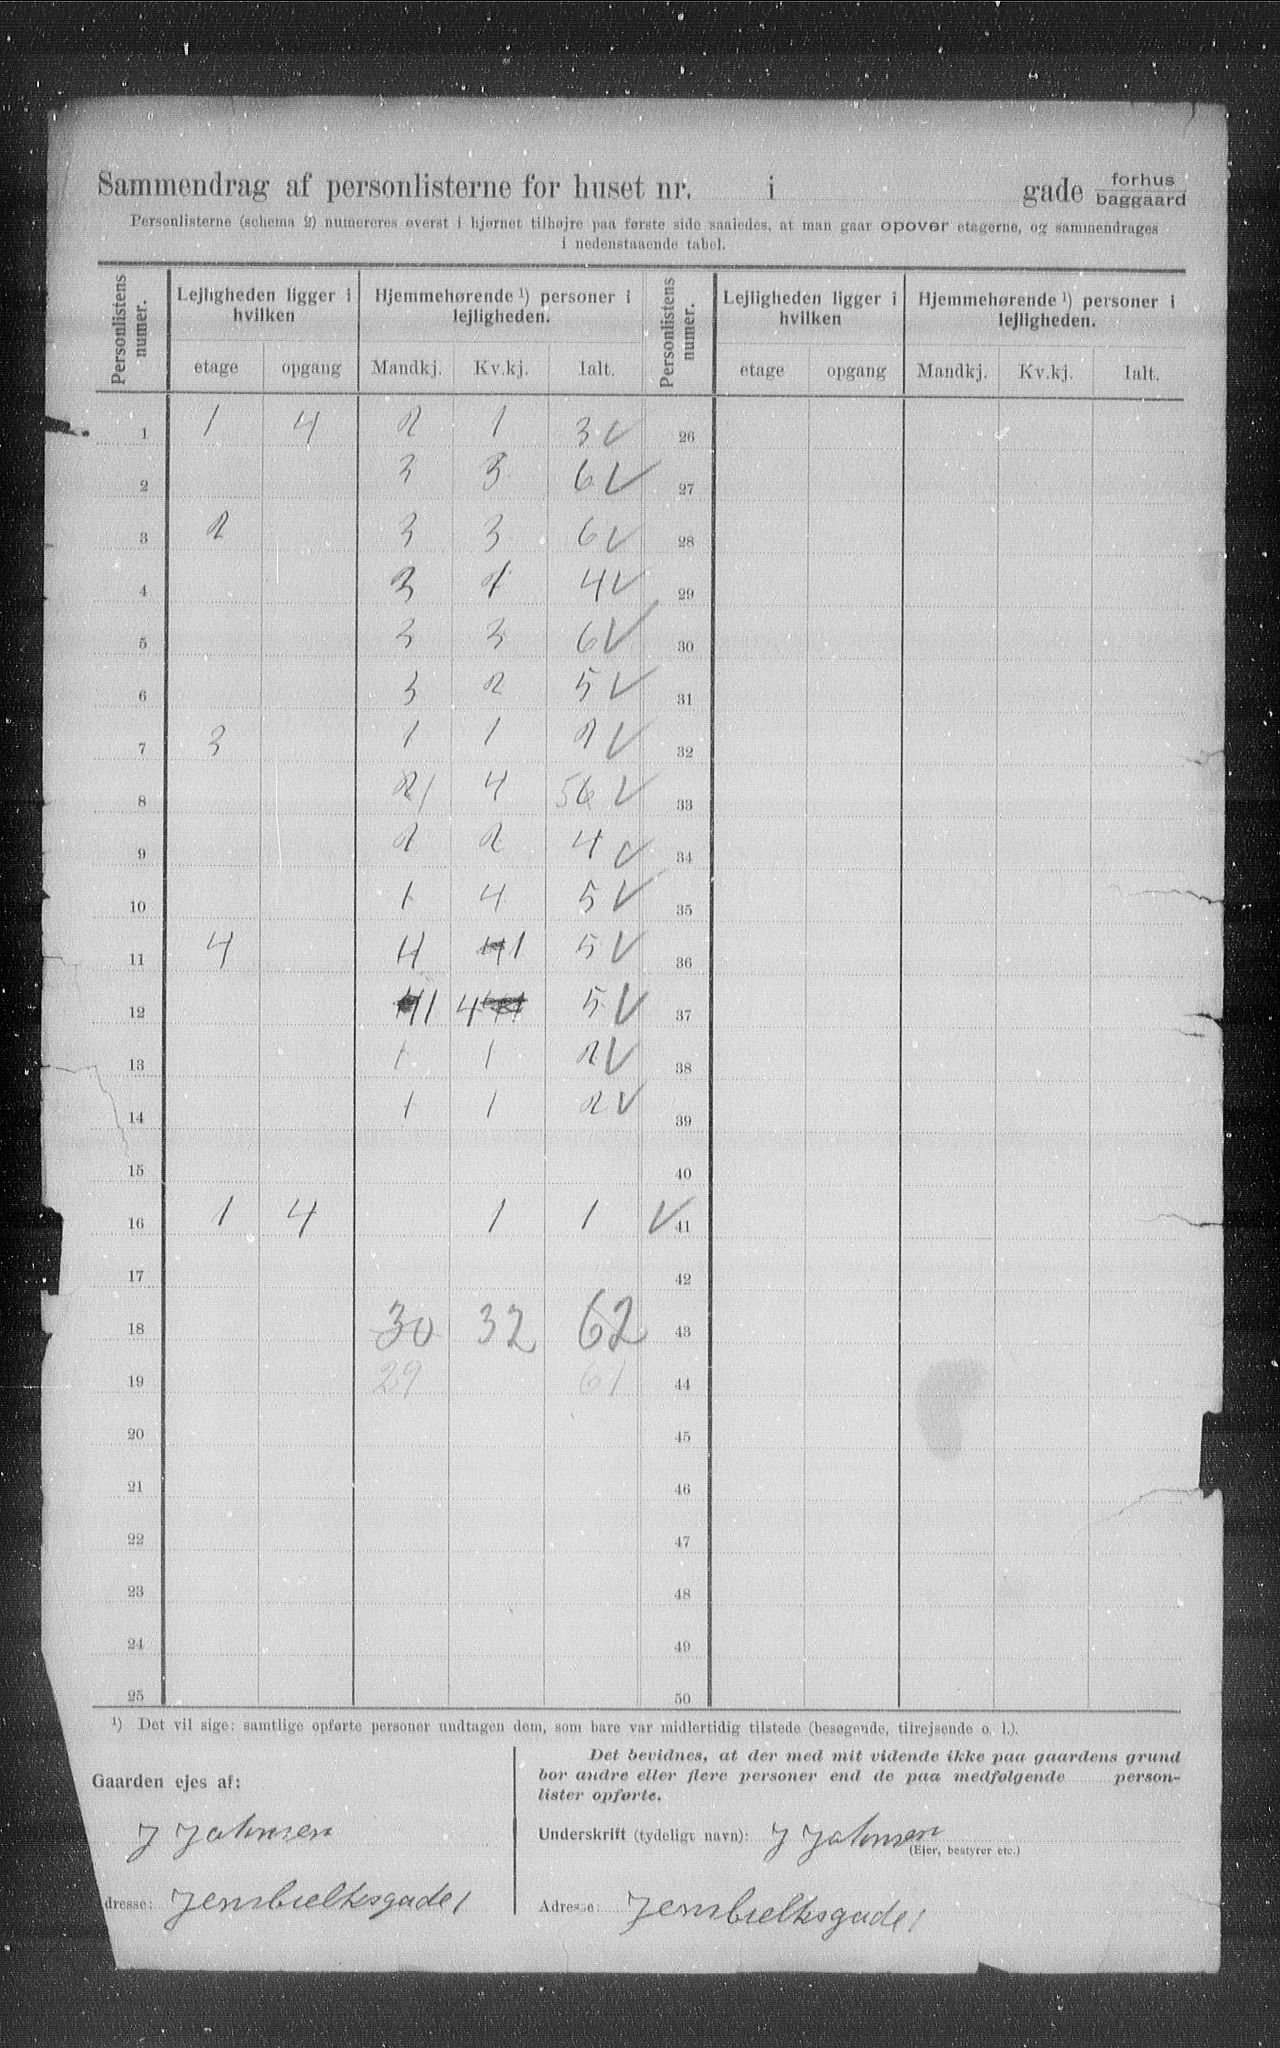 Sammendrag af personlisterne for huset nr. i gade forhus baggaard
Personlisterne (schema 2) numereres øverst i hjørnet tilhøjre paa første side saaledes, at man gaar opover etagerne, og sammendrages
i nedenstaaende tabel.
Personlistens numer. Lejligheden ligger i hvilken Hjemmehørende ¹) personer i lejligheden. Personlistens numer. Lejligheden ligger i hvilken Hjemmehørende ¹) personer i lejligheden.
etage opgang Mandkj. Kv.kj. Ialt. etage opgang Mandkj. Kv.kj. Ialt.
1 1 4 2 1 3 ✓ 26
2 3 3 6 ✓ 27
3 2 3 3 6 ✓ 28
4 3 1 4 ✓ 29
5 3 3 6 ✓ 30
6 3 2 5 ✓ 31
7 3 1 1 2 ✓ 32
8 2 1 4 5 6 ✓ 33
9 2 2 4 ✓ 34
10 1 4 5 ✓ 35
11 4 4 1 5 ✓ 36
12 1 4 5 ✓ 37
13 1 1 2 ✓ 38
14 1 1 2 ✓ 39
15 40
16 1 4 1 1 ✓ 41
17 42
18 30 32 62 43
19 29 61 44
20 45
21 46
22 47
23 48
24 49
25 50
¹) Det vil sige: samtlige opførte personer undtagen dem, som bare var midlertidig tilstede (besøgende, tilrejsende o. l.).
Det bevidnes, at der med mit vidende ikke paa gaardens grund
bor andre eller flere personer end de paa medfølgende person-
lister opførte.
Gaarden ejes af:
J Johnsen
dresse: Jensbielkesgade 1
Underskrift (tydeligt navn): J Johnsen
(Ejer, bestyrer etc.)
Adresse: Jensbielkesgade 1